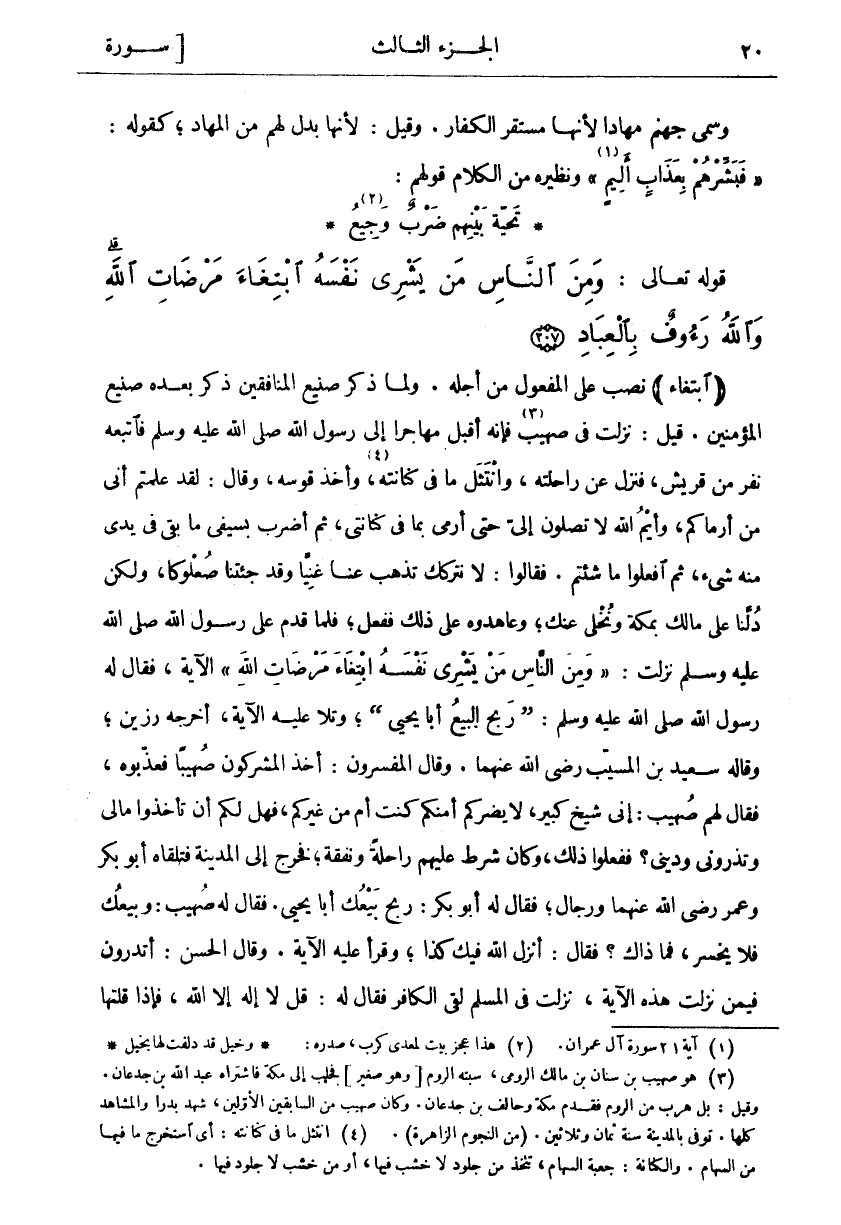 ٢٠ الجـزء الثـالث [ ســورة
وسمى جهنم مهادا لأنهـا مستقر الكفار . وقيل : لأنها بدل لهم من المهاد ؛ كقوله :
« فَبَشِّرْهُمْ بِعَذَابٍ أَلِيمٍ (١) » ونظيره من الكلام قولهم :
* تَحِيَّة بَيْنِهِم ضَرْبٌ وَجِيعُ (٢) *
قوله تعـالى : وَمِنَ ٱلنَّاسِ مَن يَشْرِى نَفْسَهُ ٱبْتِغَآءَ مَرْضَاتِ ٱللَّهِ ۗ
وَٱللَّهُ رَءُوفٌ بِٱلْعِبَادِ ٢٠٧
﴿ٱبتغاء﴾ نصب على المفعول من أجله . ولمـا ذكر صنيع المنافقين ذكر بعـده صنيع
المؤمنين . قيل : نزلت فى صهيب (٣) فإنه أقبل مهاجرا إلى رسول الله صلى الله عليه وسلم فٱتبعه
نفر من قريش، فنزل عن راحلته ، وٱنْتَثَل ما فى كنانته (٤)، وأخذ قوسه، وقال : لقد علمتم أنى
من أرماكم، وٱيْمُ الله لا تصلون إلىّ حتى أرمى بما فى كنانتى، ثم أضرب بسيفى ما بقى فى يدى
منه شىء، ثم ٱفعلوا ما شئتم . فقالوا : لا نتركك تذهب عنـا غنِيًّا وقد جئتنا صُعْلوكا، ولكن
دُلَّنا على مالك بمكة ونُخْلى عنك؛ وعاهدوه على ذلك ففعل؛ فلما قدم على رسـول الله صلى الله
عليه وسـلم نزلت : « وَمِنَ النَّاسِ مَنْ يَشْرِى نَفْسَـهُ ابْتِغَاءَ مَرْضَاتِ اللهِ » الآية ، فقال له
رسول الله صلى الله عليه وسلم : ” رَبِح البيعُ أبا يحيى “ ؛ وتلا عليـه الآية، أخرجه رزين ؛
وقاله سـعيد بن المسيّب رضى الله عنهما . وقال المفسرون : أخذ المشركون صُهيبًا فعذّبوه ،
فقال لهم صُهيب : إنى شيخ كبير، لا يضركم أمنكم كنت أم من غيركم، فهل لكم أن تأخذوا مالى
وتذرونى ودينى؟ ففعلوا ذلك، وكان شرط عليهم راحلةً ونفقة؛ فخرج إلى المدينة فتلقاه أبو بكر
وعمر رضى الله عنهما ورجال؛ فقال له أبو بكر : ربح بَيْعُك أبا يحيى. فقال له صُهيب : وبيعُك
فلا يخسر، فما ذاك ؟ فقال : أنزل الله فيك كذا ؛ وقرأ عليه الآية . وقال الحسن : أتدرون
فيمن نزلت هذه الآية ، نزلت فى المسلم لقى الكافر فقال له : قل لا إله إلا الله ، فإذا قلتها
(١) آية ٢١ سورة آل عمران. (٢) هذا عجز بيت لمعدى كرب، صدره : * وخيل قد دلفت لها بخيل *
(٣) هو صهيب بن سنان بن مالك الرومى، سبته الروم [وهو صغير] فجلب إلى مكة فاشتراه عبد الله بن جدعان.
وقيل : بل هرب من الروم فقـدم مكة وحالف بن جدعان. وكان صهيب من السابقين الأوّلين، شهد بدرا والمشاهد
كلها . توفى بالمدينة سنة ثمان وثلاثين. (من النجوم الزاهرة) . (٤) انتثل ما فى كنانته : أى ٱستخرج ما فيهـا
من السهام . والكنانة : جعبة السهام، تتخذ من جلود لا خشب فيها، أو من خشب لا جلود فيها .